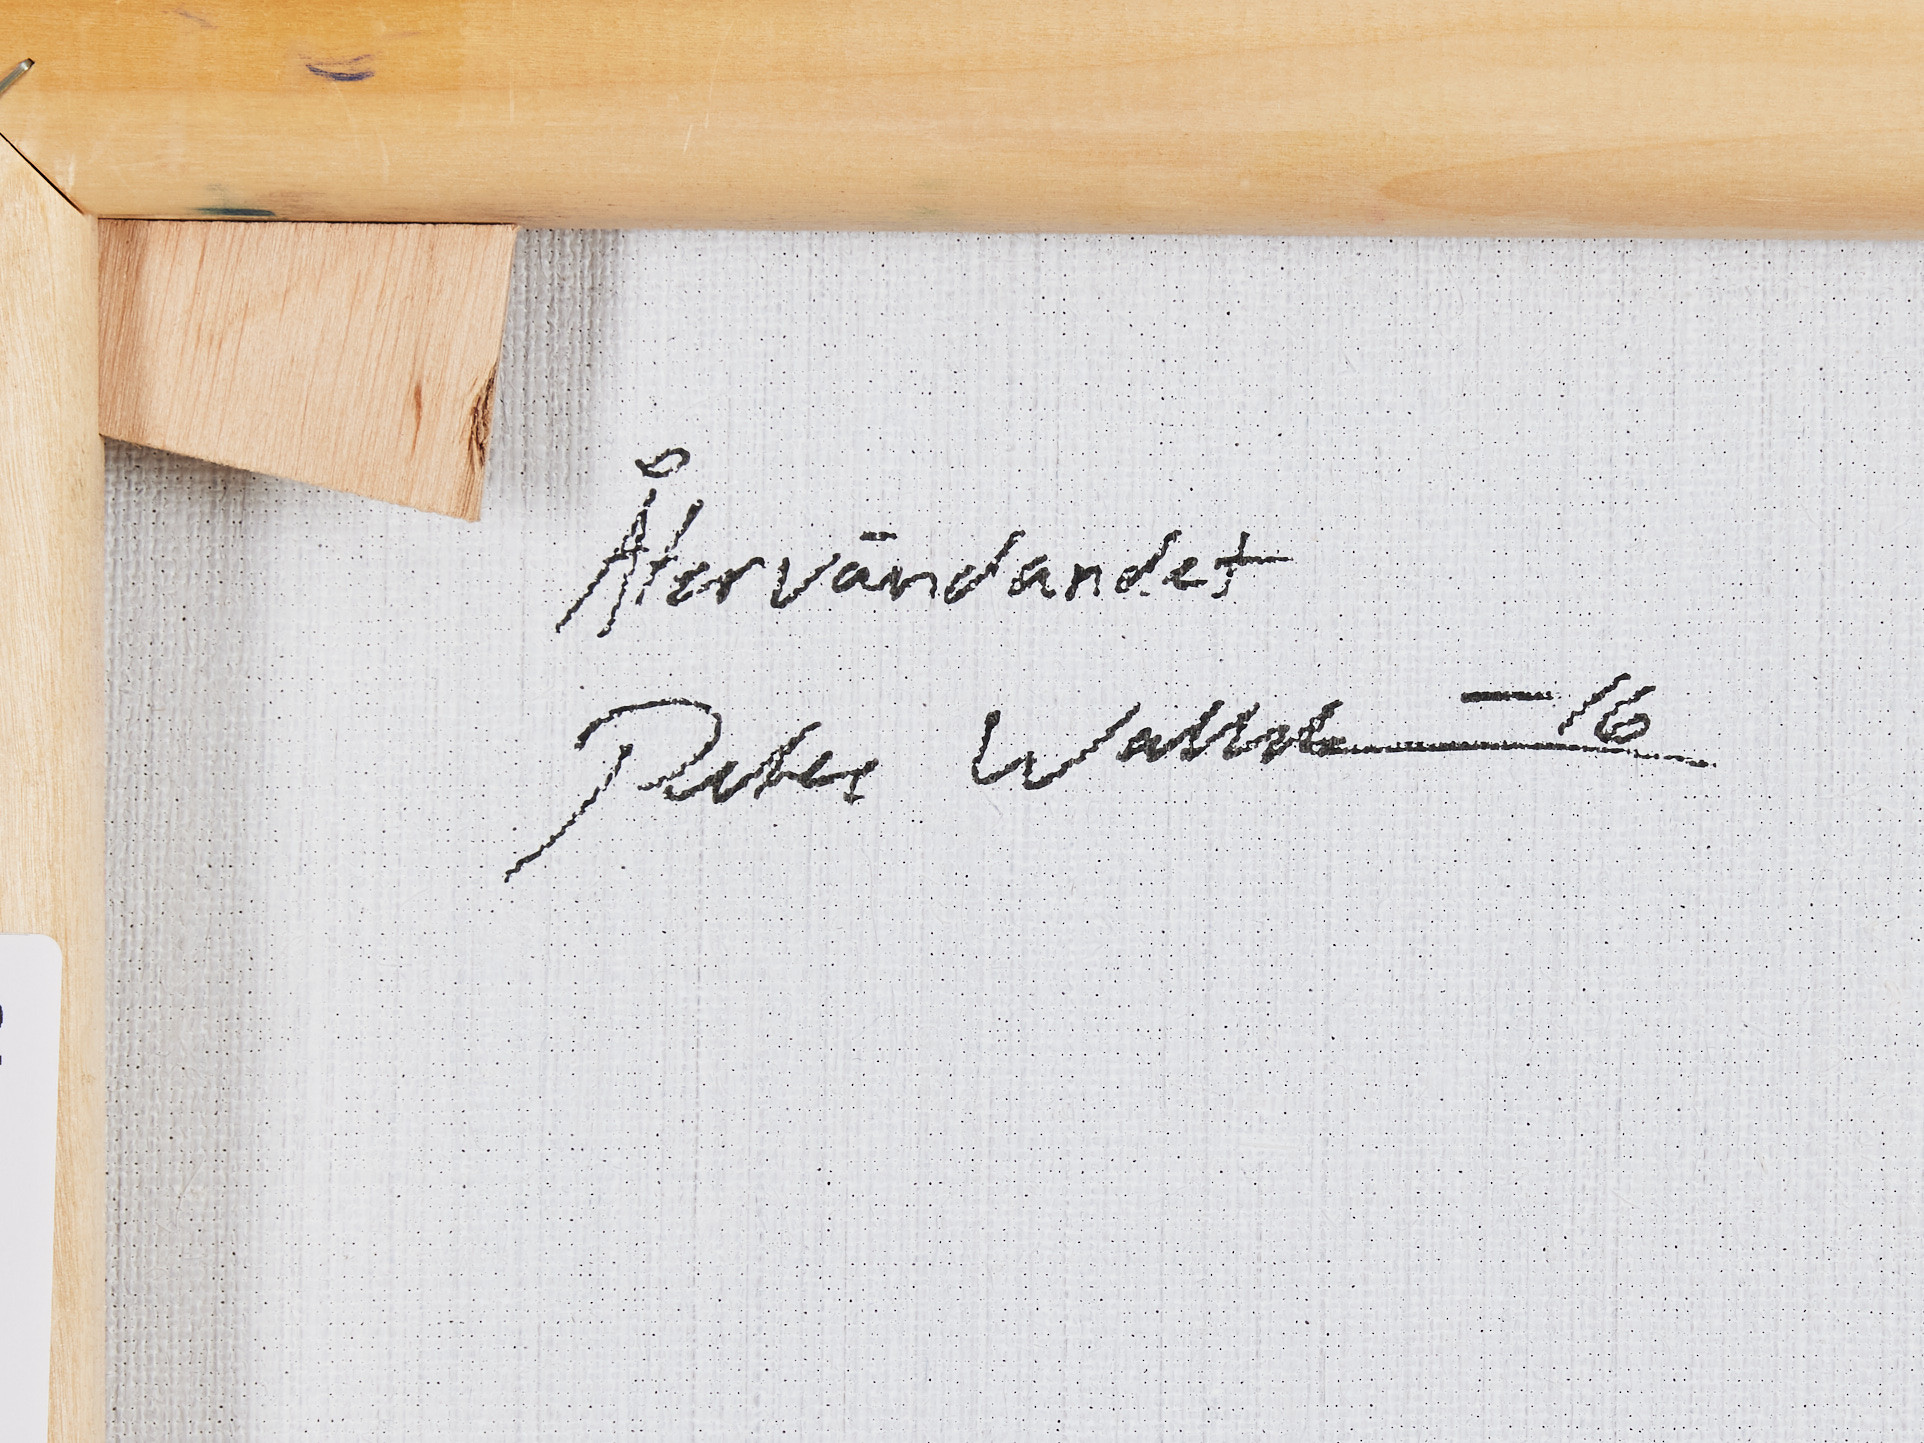 Återvändandet
Peter Wallin -16